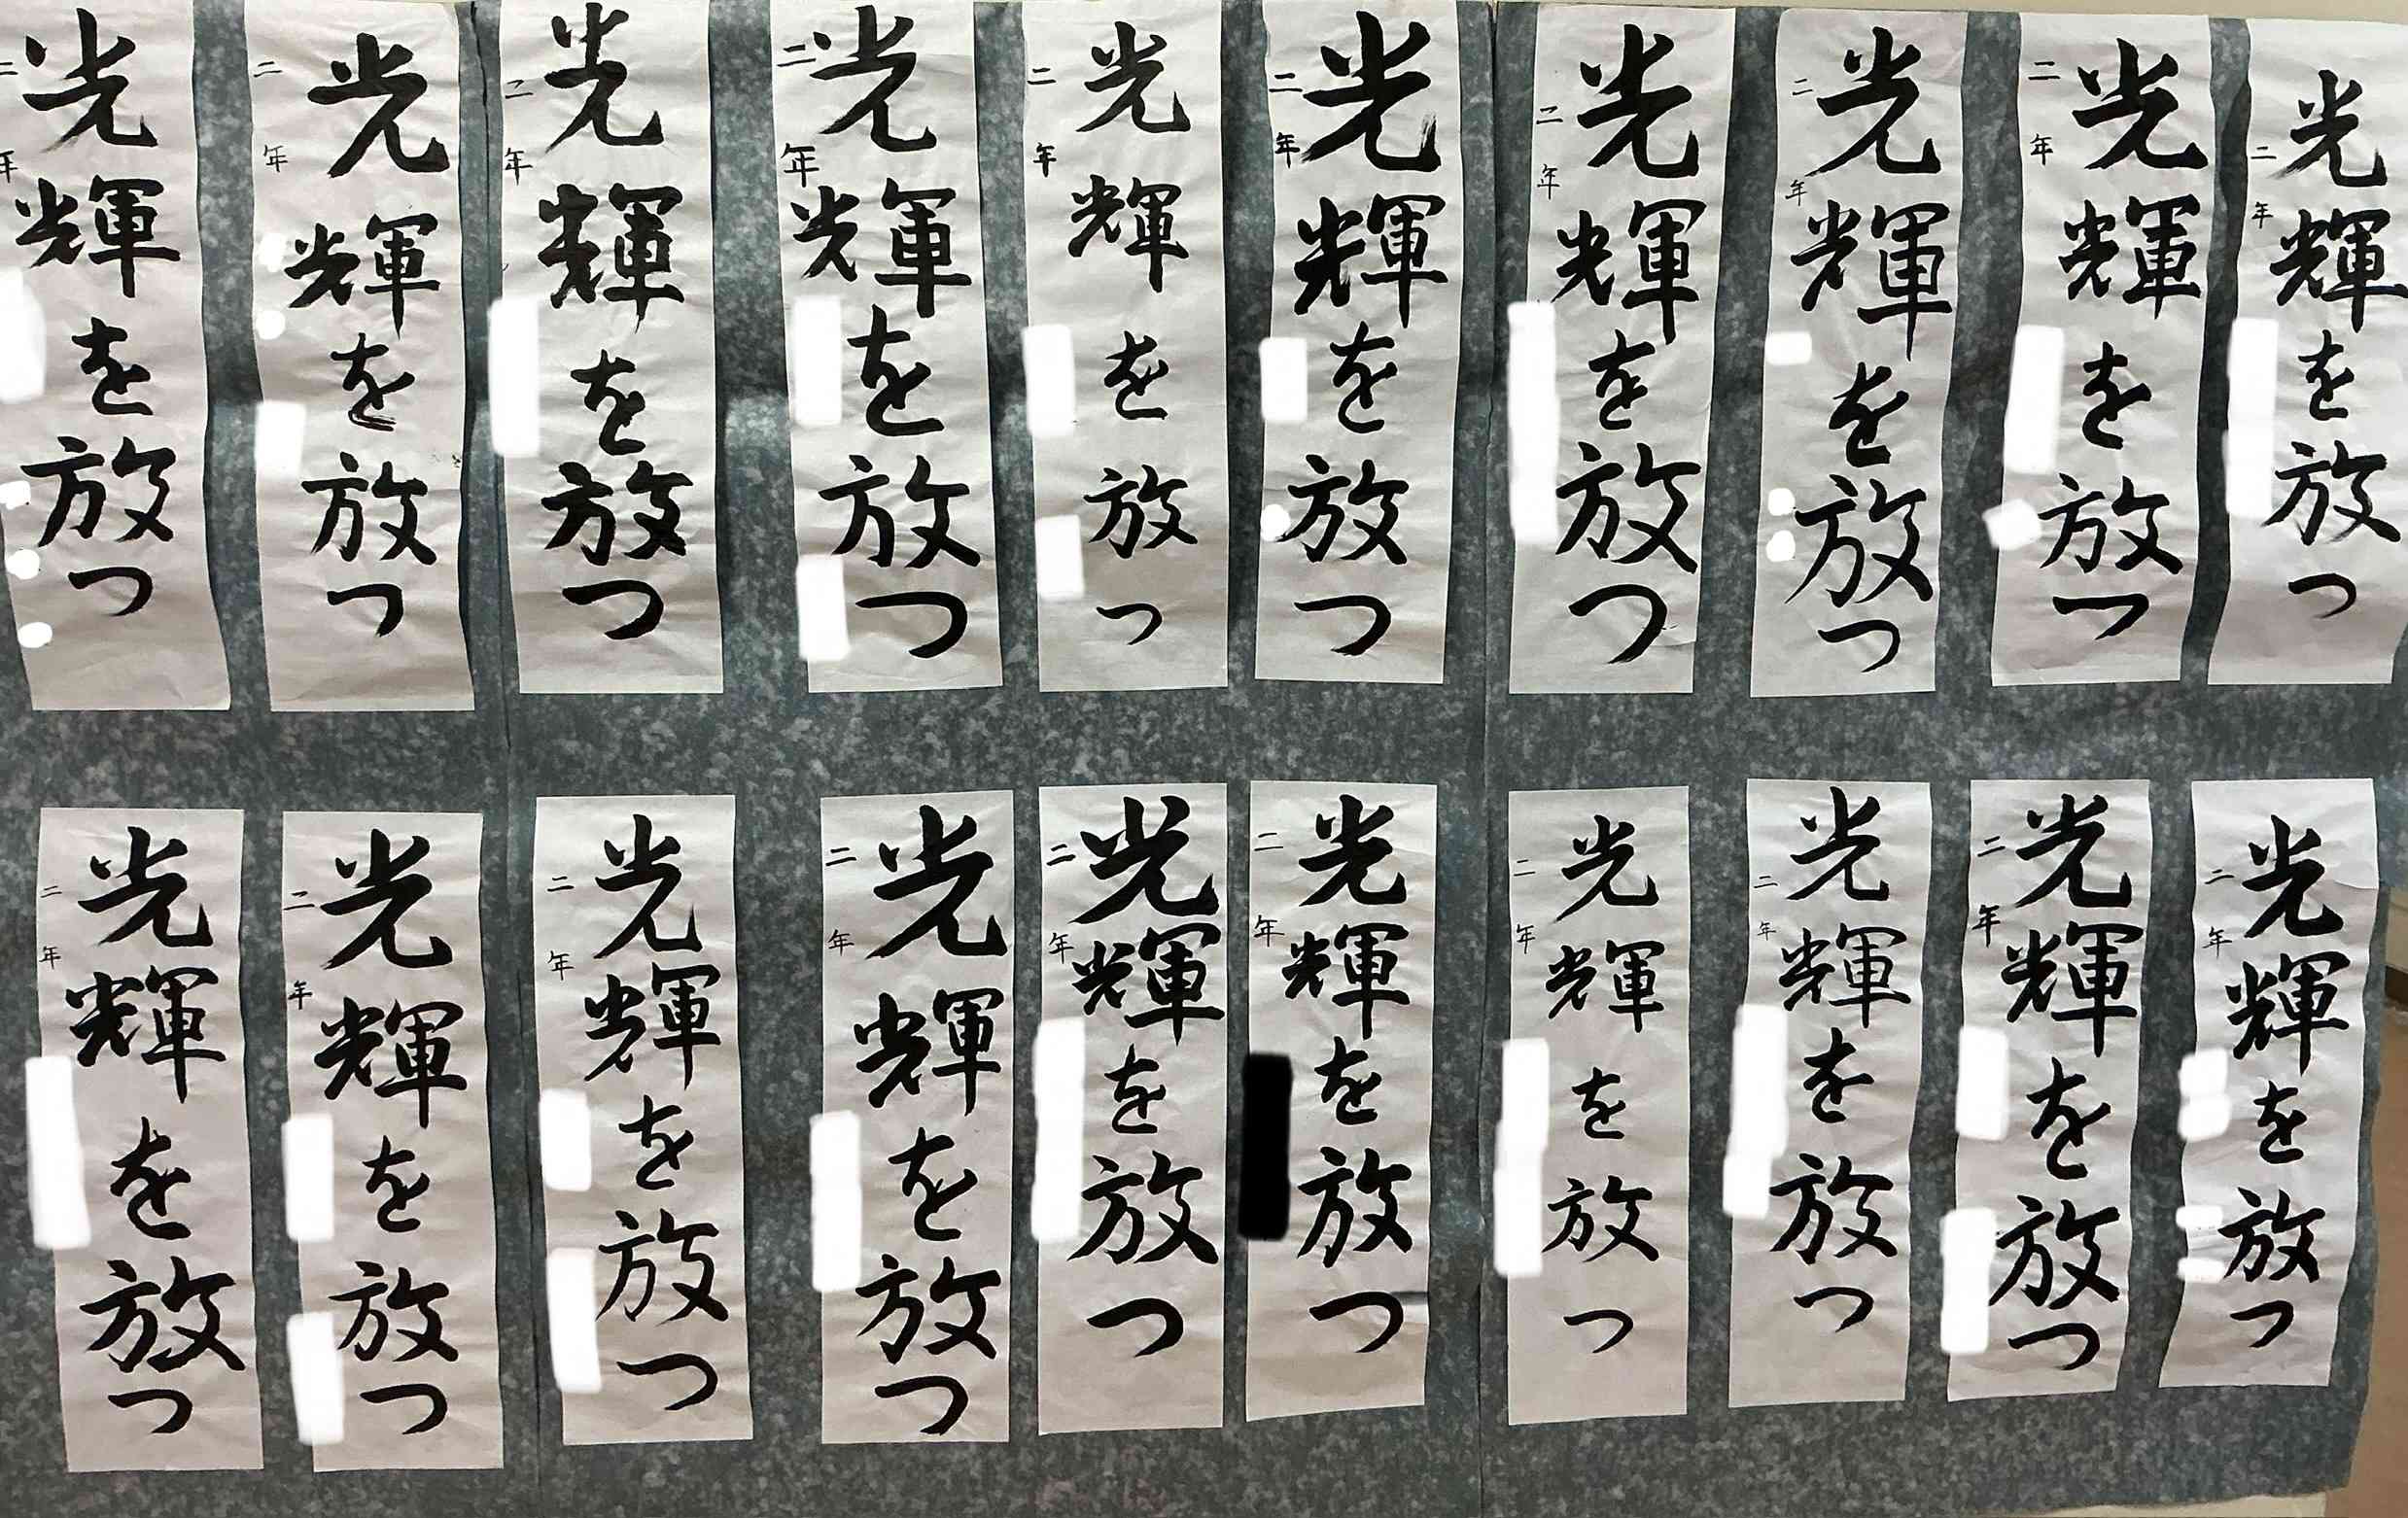 光輝を放つ
二年
光輝を放つ
二年
光輝を放つ
二年
光輝を放つ
二年
光輝を放つ
二年
光輝を放つ
二年
光輝を放つ
二年
光輝を放つ
二年
光輝を放つ
二年
光輝を放つ
二年
光輝を放つ
二年
光輝を放つ
二年
光輝を放つ
二年
光輝を放つ
二年
光輝を放つ
二年
光輝を放つ
二年
光輝を放つ
二年
光輝を放つ
二年
光輝を放つ
二年
光輝を放つ
二年